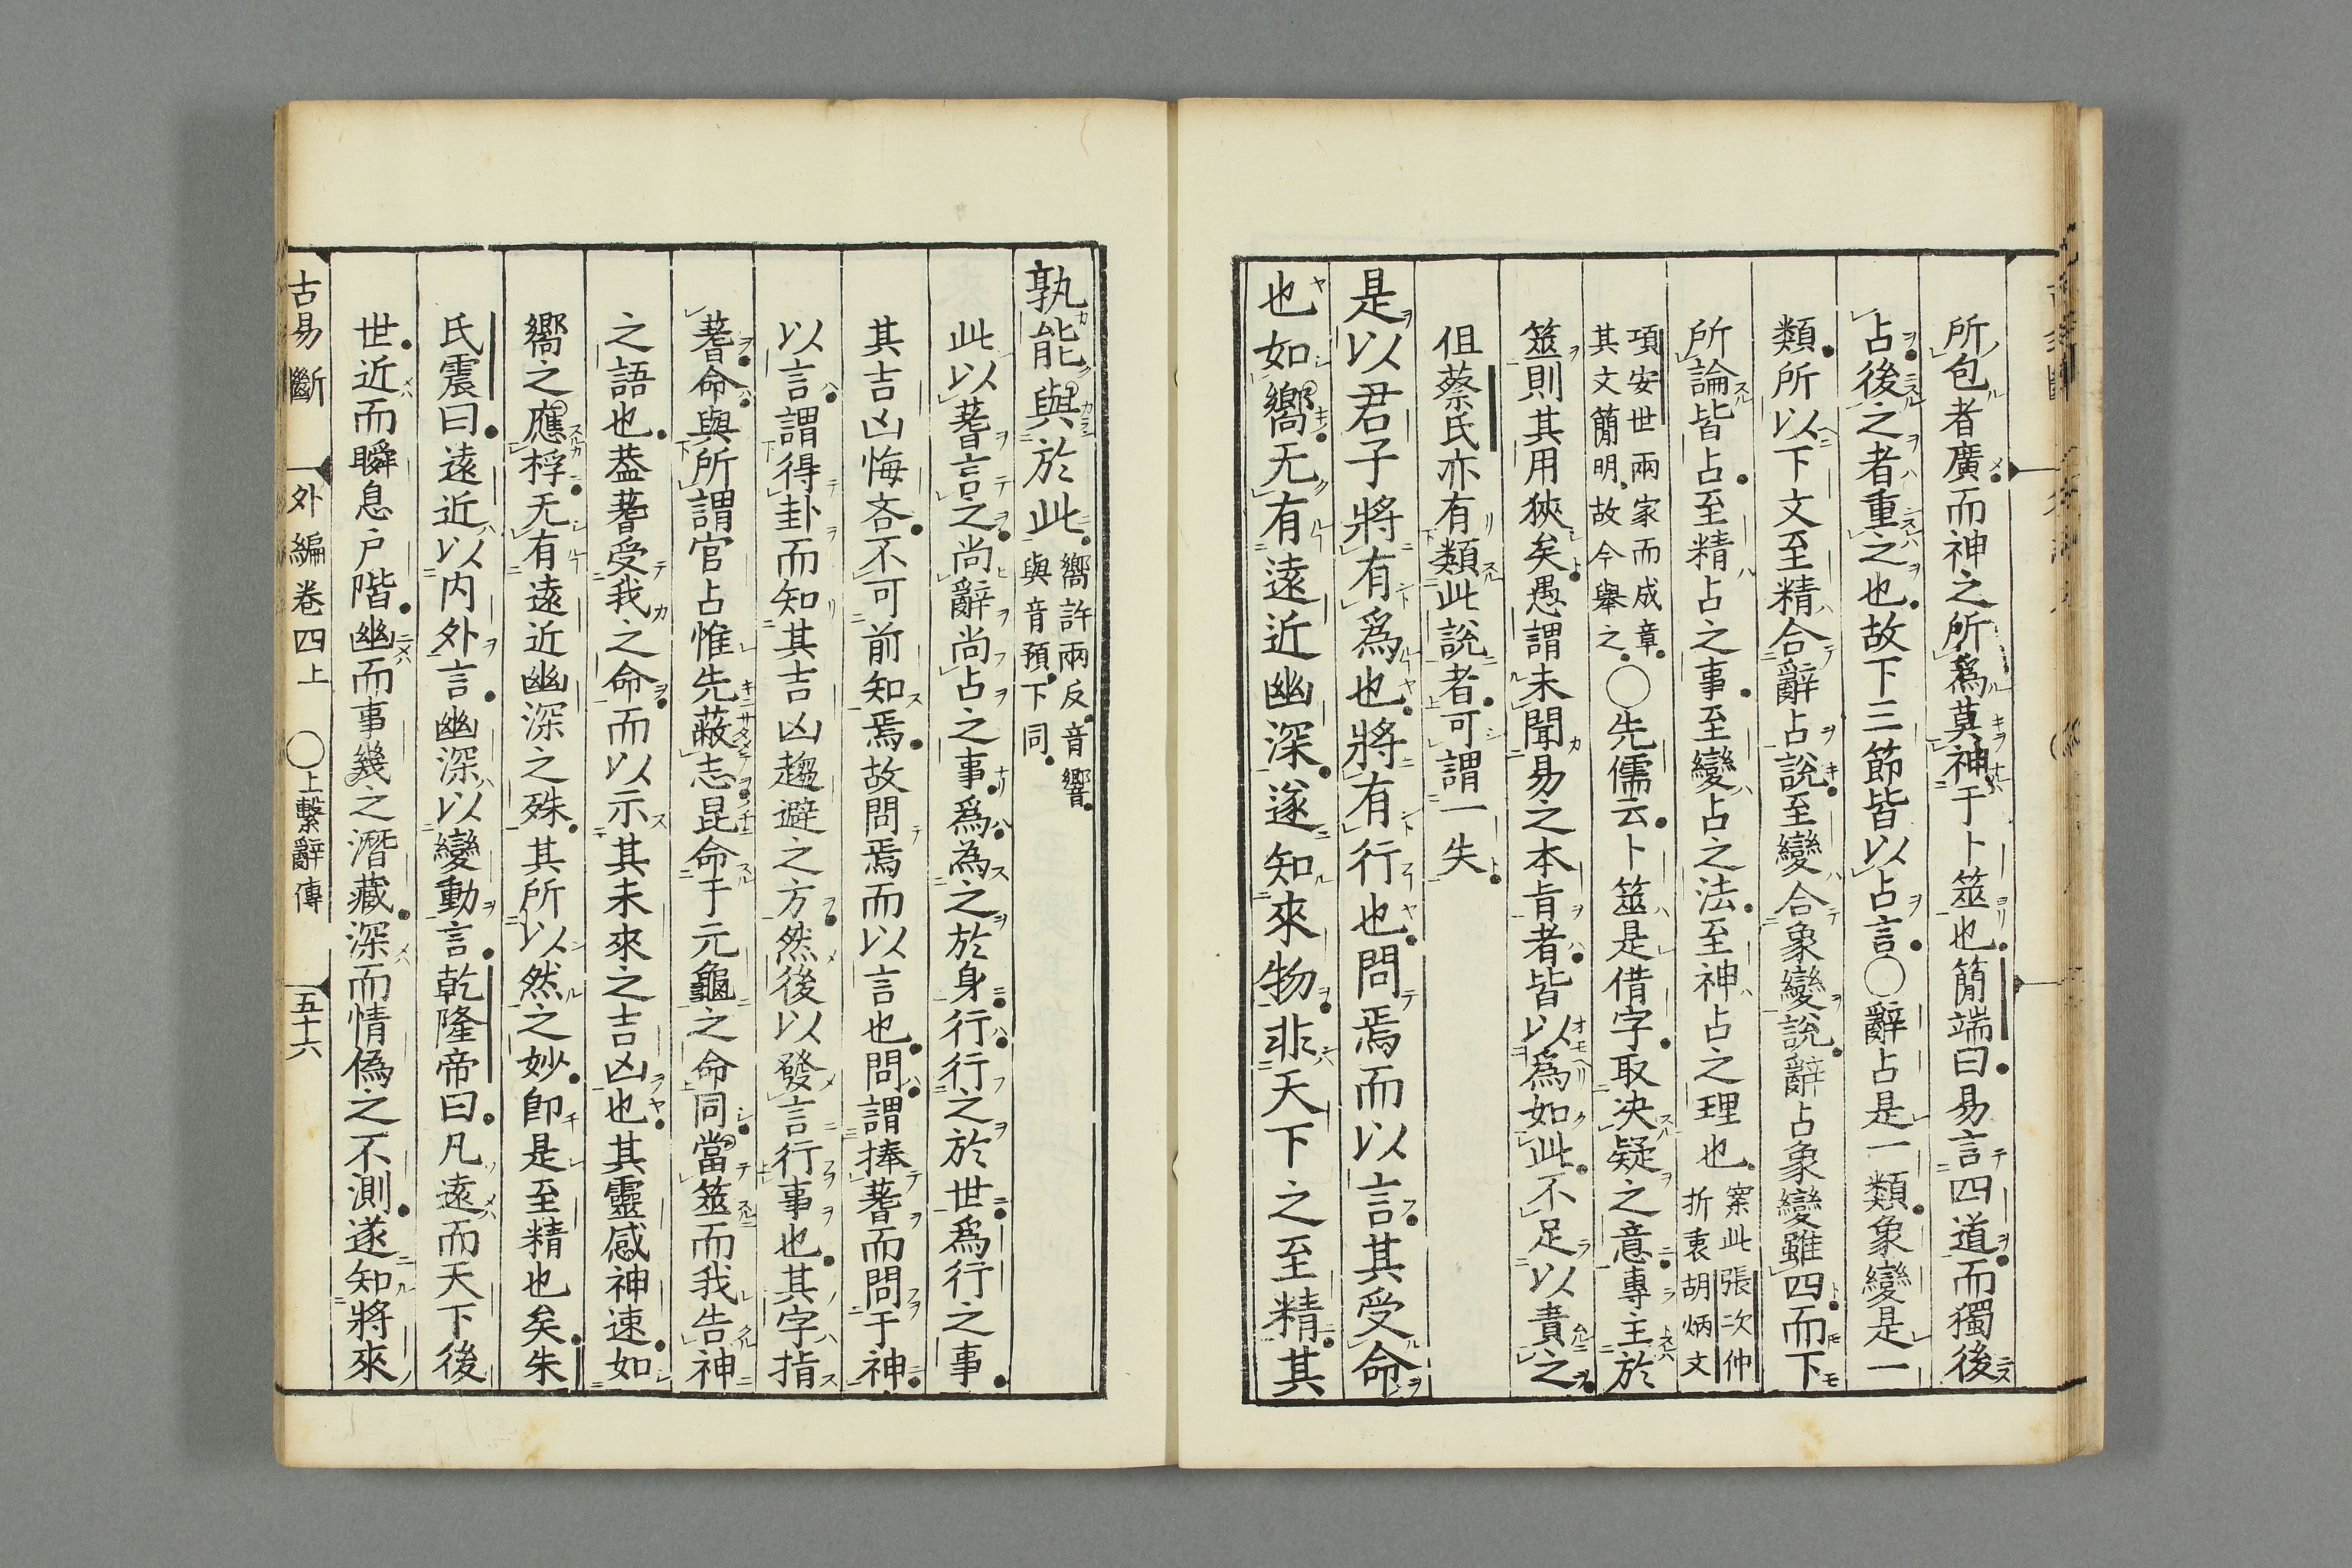 所包者廣而神之所爲莫神于卜筮也簡端曰易言四道而獨後
占後之者重之也故下三節皆以占言〇辭占是一類象變是一
類所以下文至精合辭占說至變合象變說辭占象變雖四而下
所論皆占至精占之事至變占之法至神占之理也案此張次仲
折衷胡炳文
項安世兩家而成章
其文簡明故今舉之〇先儒云卜筮是借字取决疑之意專主於
筮則其用狹矣愚謂未聞易之本旨者皆以爲如此不足以責之
但蔡氏亦有類此說者可謂一失
是以君子將有爲也將有行也問焉而以言其受命
也如嚮无有遠近幽深遂知來物非天下之至精其
孰能與於此嚮許兩反音響
與音預下同
此以蓍言之尚辭尚占之事爲為之於身行行之於世爲行之事
其吉凶悔吝不可前知焉故問焉而以言也問謂捧蓍而問于神
以言謂得卦而知其吉凶趨避之方然後以發言行事也其字指
蓍命與所謂官占惟先蔽志昆命于元龜之命同當筮而我告神
之語也葢蓍受我之命而以示其未來之吉凶也其靈感神速如
嚮之應桴无有遠近幽深之殊其所以然之妙卽是至精也矣朱
氏震曰遠近以内外言幽深以變動言乾隆帝曰凡遠而天下後
世近而瞬息戸階幽而事幾之潛藏深而情僞之不測遂知將來
古易斷　外編卷四上　〇上繫辭傳　五十六